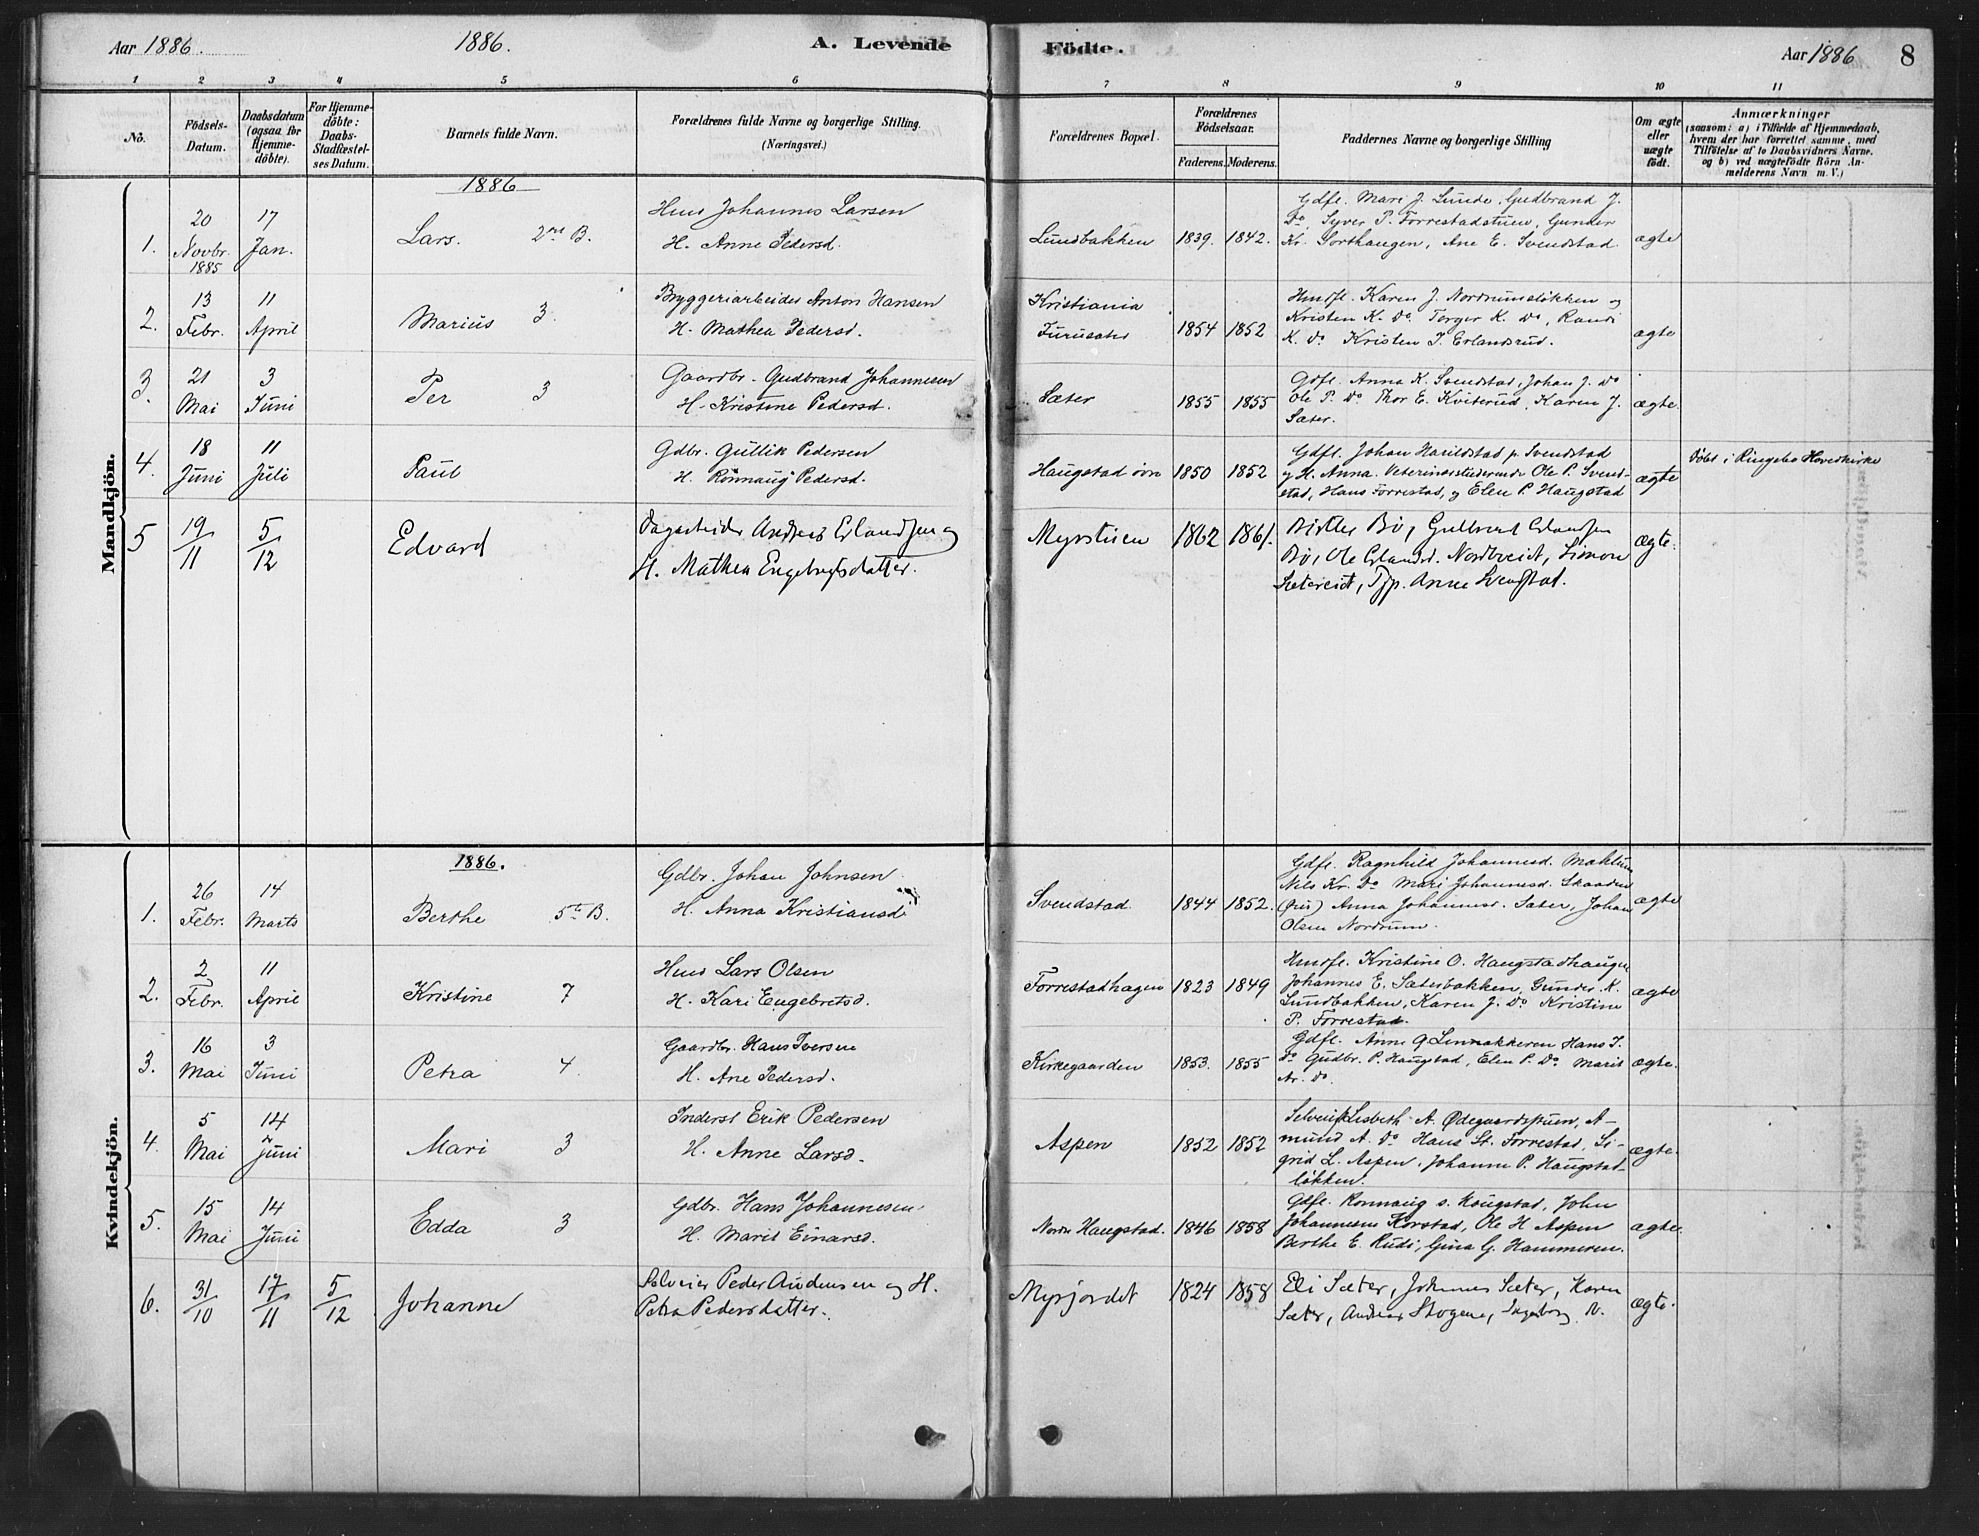 Aar 1886.
1886.
A. Levende
Födte.
Aar 1886
8
1
2
3
4
5
6
7
8
9
10
11
No.
Födsels-
Datum.
Daabsdatum
(ogsaa for
Hjemme-
döbte).
For Hjemme-
döbte:
Daabs-
Stadfæstel-
ses Datum.
Barnets fulde Navn.
Forældrenes fulde Navne og borgerlige Stilling.
(Næringsvei.)
Forældrenes Bopæl.
Forældrenes
Födselsaar.
Faderens.
Moderens.
Faddernes Navne og borgerlige Stilling
Om ægte
eller
uægte
födt.
Anmærkninger
(saasom: a) i Tilfælde af Hjemmedaab,
hvem der har forrettet samme, med
Tilföielse af to Daabsvidners Navne,
og b) ved uægtefödte Börn An-
melderens Navn m. V.)
Mandkjön.
1886
1.
20
Novbr.
1885
17
Jan.
Lars.
2det B.
Husm. Johannes Larsen
H. Anne Pedersd.
Lundbakken
1839.
1842.
Gdfl. Mari J. Lunde, Gudbrand J.
Do, Syver P. Forrestadstuen, Gunder
Kr. Sorthaugen, Ane E. Svendstad.
ægte
2.
13
Febr.
11
April
Marius
3.
Bryggeriarbeider Anton Hansen
H. Mathea Pedersd.
Kristiania
Furusæter
1854
1852
Hmdfl. Karen J. Nordrumsløkken og
Kristen K. Do. Torger K. Do, Randi
K. Do Kristen J. Erlandsrud.
ægte
3.
21
Mai
3
Juni
Per
3
Gaardbr. Gudbrand Johannesen
H. Kristine Pedersd.
Sæter
1855
1855
Gdfl. Anna K. Svendstad, Johan J. Do
Ole P. Do Thor E. Kviterud, Karen J.
Sæter.
ægte.
4.
18
Juni
11
Juli
Paul
Gdbr. Gullik Pedersen
H. Rönnaug Pedersd.
Haugstad övre
1850
1852
Gdfl. Johan Haualdstad p. Svendstad
og H. Anna. Veterinærstuderende Ole P. Svend-
stad, Hans Forrestad, og Elen P. Haugstad
ægte
Döbt i Ringebo Hovedkirke
5
19/11
5/12
Edvard
Dagarbeider Andreas Erlandsen og
H. Mathea Engebregtsdatter.
Myrstuen
1862
1861.
Birtler Bö, Gulbrand Erlandsen
Bö, Ole Erlands. Nordbreidt, Simon
Sætereidt, Tjp. Anne Svendstad.
ægte.
Kvindekjön.
1886.
1.
26
Febr.
14
Marts
Berthe
5te B.
Gdbr. Johan Johnsen
H. Anna Kristiansd.
Svendstad.
1844
1852.
Gdfl. Ragnhild Johannesd. Mæhlum
Nils Kr. Do Mari Johannesd. Skaaden
(Öier) Anna Johannesd. Sæter, Johan
Olsen Nordrum.
ægte
2.
2
Febr.
11
April
Kristine
7
Husm. Lars Olsen
H. Kari Engebretsd.
Forrestadhagen
1823
1849
Hmdfl. Kristine O. Haugstadhaugen
Johannes E. Sæterbakken, Gunder K.
Lundbakken, Karen J. Do Kristine
P. Forrestad.
ægte
3.
16
Mai
3
Juni
Petra
4.
Gaardbr. Hans Iversen
H. Ane Pedersd.
Kirkegaarden
1853.
1855
Gdfl. Anne G. Linnakkeren Hans I.
Do Gudbr. P. Haugstad, Elen P. Do Marit
Ar. Do.
ægte.
4.
5
Mai
14
Juni
Mari
3
Inderst Erik Pedersen
H. Anne Larsd.
Aspen
1852
1852
Selveierfl. Lisbeth A. Ödegaardstuen, A-
mund A. Do Hans St. Forrestad, Si-
grid L. Aspen, Johanne P. Haugstad-
løkken.
ægte.
5.
15
Mai
14
Juni
Edda
3
Gdbr. Hans Johannesen
H. Marit Einarsd.
Nordre Haugstad.
1846
1858
Gdfl. Ronnaug s. Haugstad, John
Johannesen Korstad, Ole H. Aspen
Berthe E. Rudi, Gina G. Hammeren.
ægte.
6.
31/10
17/11
5/12
Johanne
Selveier Peder Andersen og H.
Petra Pedersdatter.
Myrjordet
1824
1858
Eli Sæter, Johannes Sæter, Karen
Sæter, Andreas Skogene, Ingeborg N.
ægte.